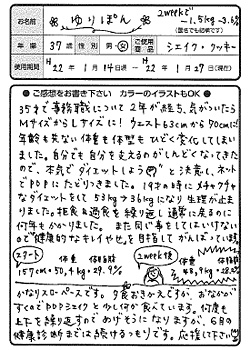 お名前
ゆりぽん
2weekで
-1.5kg -3.6%
(匿名でも結構です)
年齢 37歳 性別 男・女 ご使用商品 シェイク・クッキー
使用期間 H22年1月14日～H22年1月27日(現在)
●ご感想をお書き下さい カラーのイラストもOK!●
35才で事務職について2年が経ち、気がついたら
MサイズからLサイズに!ウエスト63cmが70cmに!
年齢も笑ない体重も体型もひどく変化してしまい
ました。自分でも自分を支えるのがしんどくなってきた
ので、本気でダイエットしよう と決意し、ネット
でPDPにたどりつきました。19才の時にメチャクチャ
なダイエットをして53kg→36kgになり生理が止ま
りました。拒食&過食を繰り返し通常に戻るのに
何年もかかりました。また同じ事をしてはいけない
ので"健康的なキレイやせ"を目指してがんばっています
スタート 体重 体脂肪
157cm・50.4kg・29.9%
2week後 体重 体脂肪
48.9kg・26.3%
かなりスローペースです。夕食おきかえですが、おなかが
すくのでPDPシェイクと少し何か食べています。何度も
上下を繰り返すのであげそうになりますが、6月の
健康診断までは続けるつもりです。応援して下さい